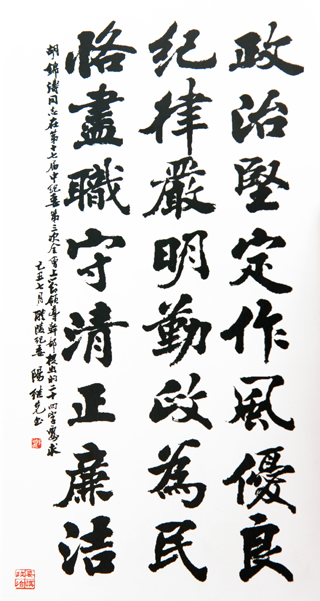 政治堅定作風優良
紀律嚴明勤政為民
恪盡職守清正廉洁
胡錦濤同志在第十七届中紀委第三次全會上對領導幹部提出的二十四字要求
己丑七月醴陵紀委陽繼光書